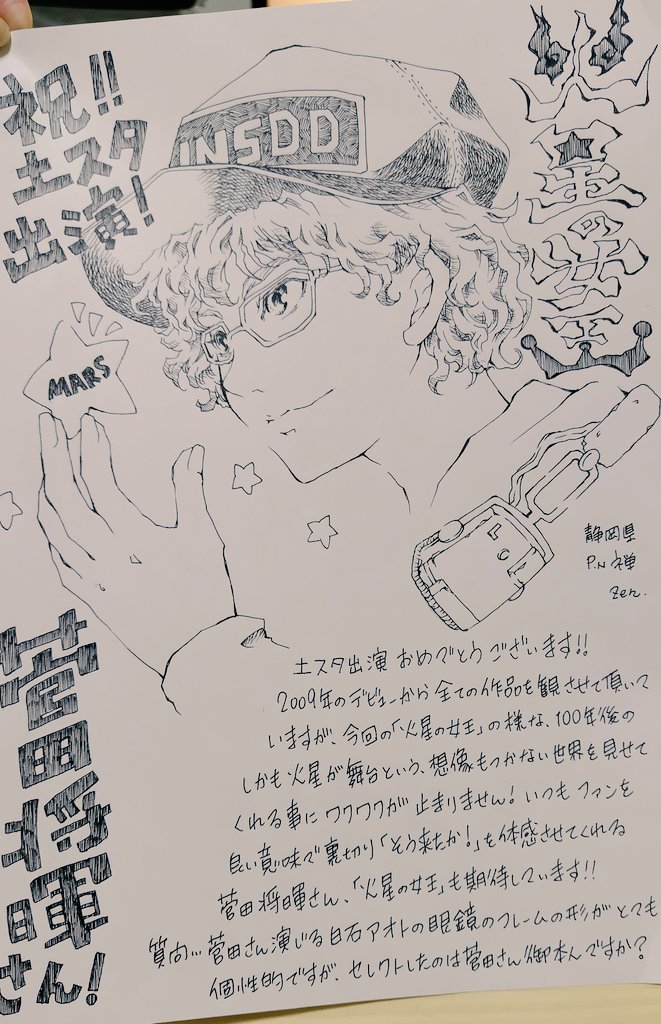 祝!!
土スタ
出演!
INSDD
火星の女王
MARS
静岡県
P.N 禅
zen.
菅田将暉さん!
土スタ出演 おめでとうございます!!
2009年のデビューから全ての作品を観させて頂いて
いますが、今回の「火星の女王」の様な、100年後の
しかも火星が舞台という、想像もつかない世界を見せて
くれる事にワクワクが止まりません! いつもファンを
良い意味で裏切り「そう来たか!」を体感させてくれる
菅田将暉さん、「火星の女王」も期待しています!!
質問… 菅田さん演じる白石アオトの眼鏡のフレームの形がとても
個性的ですが、セレクトしたのは菅田さん御本人ですか?